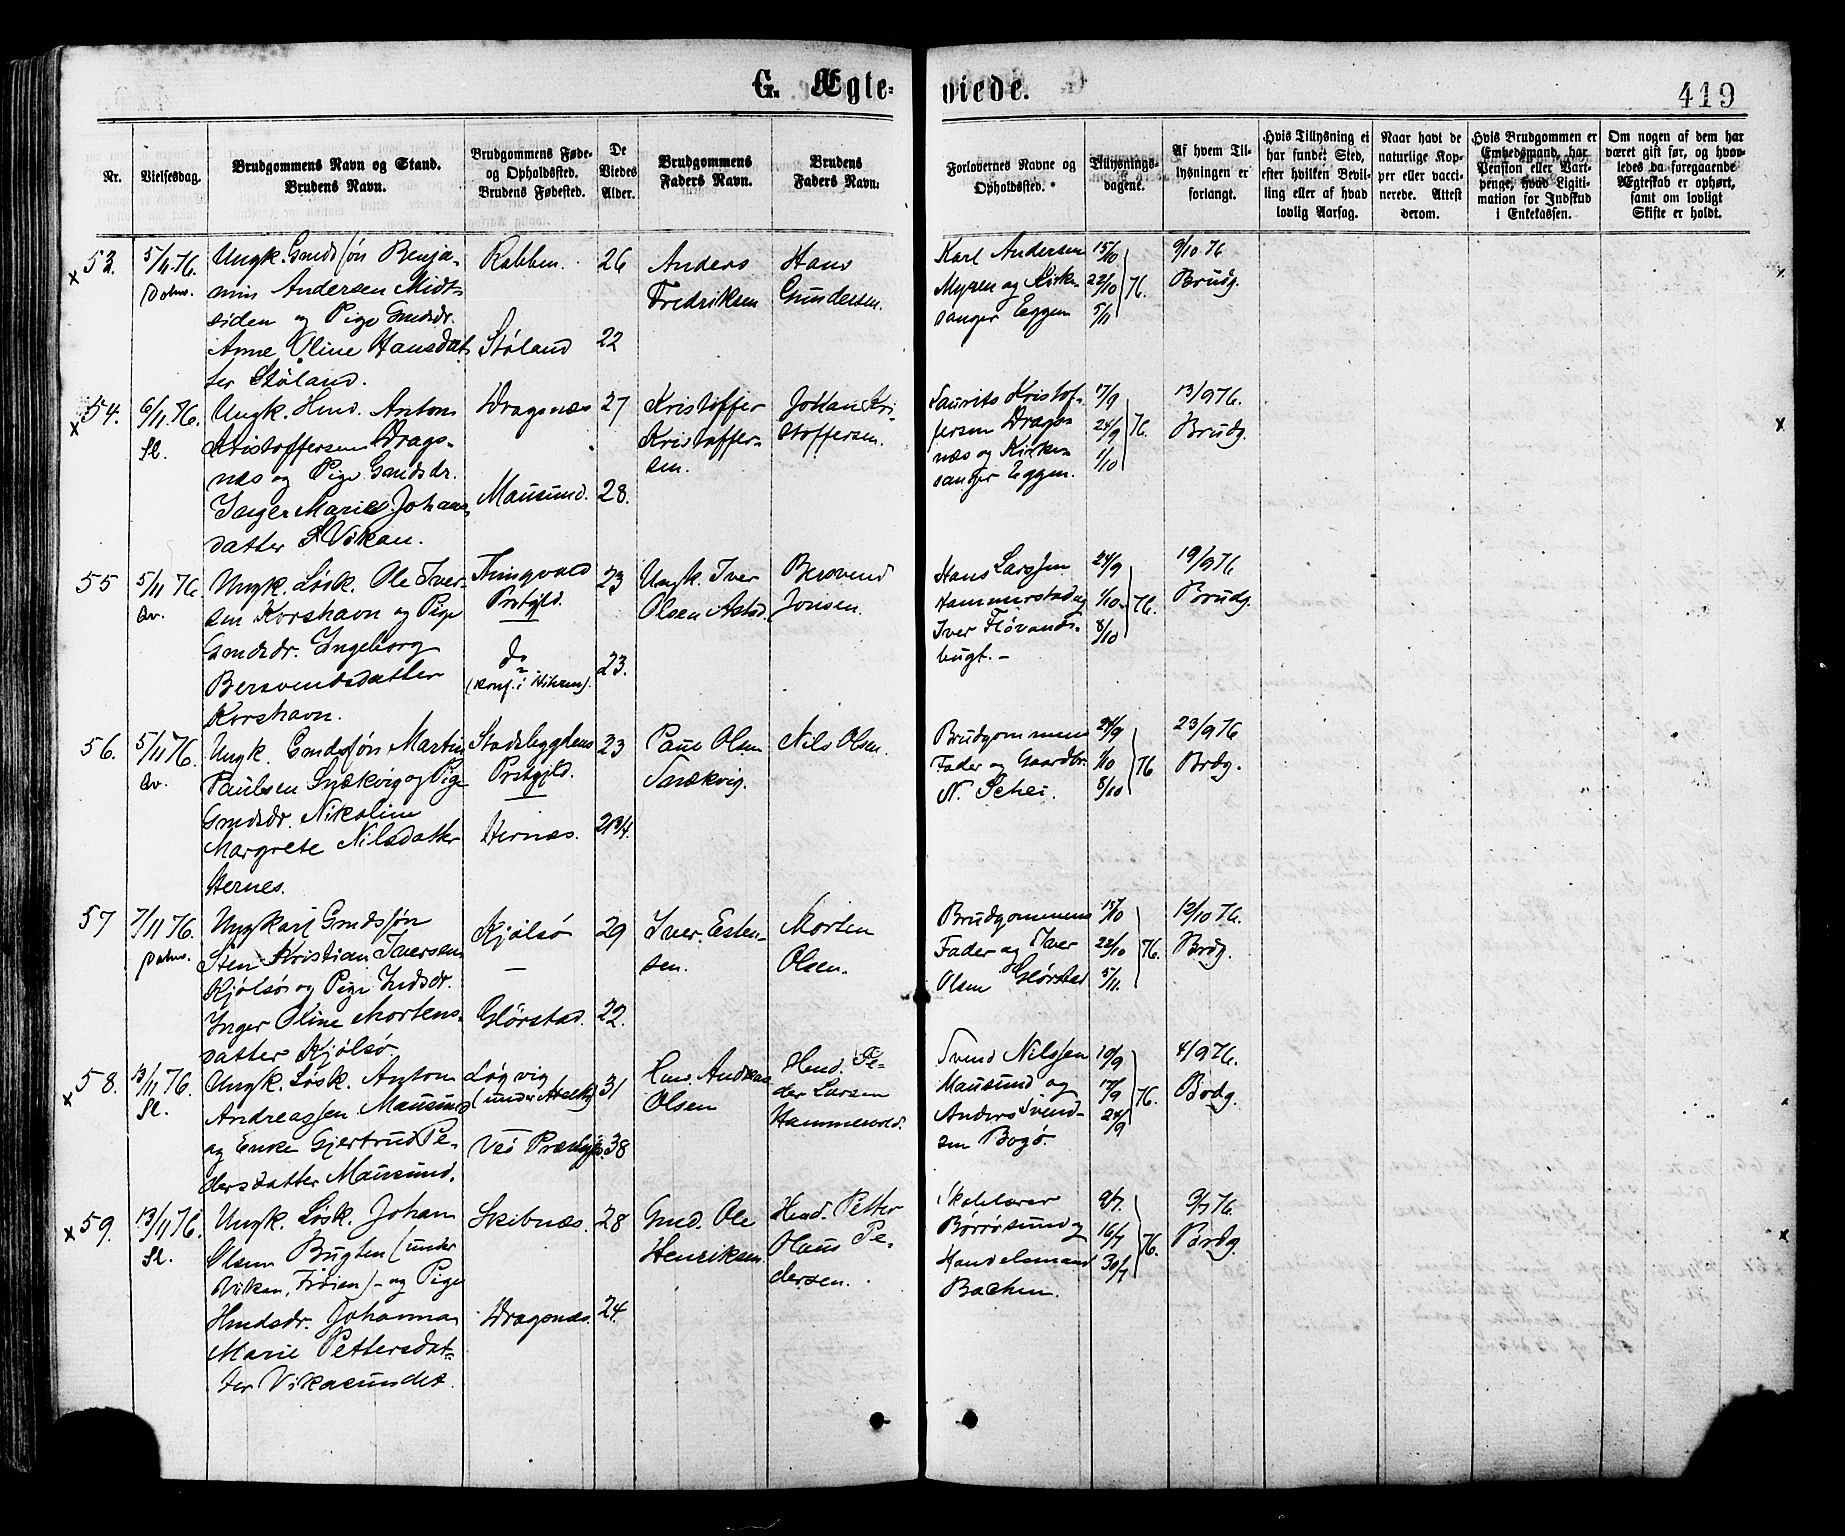 G. Ægte-
viede.
419
Nr.
Vielsesdag.
Brudgommens Navn og Stand.
Brudens Navn.
Brudgommens Føde-
og Opholdssted.
Brudens Fødested.
De
Viedes
Alder.
Brudgommens
Faders Navn.
Brudens
Faders Navn.
Forlovernes Navne og
Opholdssted.
Tillysnings-
dagene.
Af hvem Til-
lysningen er
forlangt.
Hvis Tillysning ei
har fundet Sted,
efter hvilken Bevil-
ling eller af hvad
lovlig Aarsag.
Naar havt de
naturlige Kop-
per eller vacci-
nerede. Attest
derom.
Hvis Brudgommen er
Embedsmand, har
Pension eller Vart-
penge, hvad Ligiti-
mation for Indskud
i Enkekassen.
Om nogen af dem har
været gift før, og hvor-
ledes da foregaaende
Ægteskab er ophørt,
samt om lovligt
Skifte er holdt.
x 53.
5/11 76.
Ungk. Gmdssøn Benja-
min Andersen Midt-
siden og Pige Gmdsdr.
Anne Oline Hansdat-
ter Støland.
Rabben.
Støland
26
22
Anders
Fredriksen
Hans
Gundersen.
Karl Andersen
Myren og Kirke-
sanger Eggen
15/10
22/10
5/11
76.
9/10 76
Brudg.
x 54.
6/11 76.
Sl.
Ungk. Hmd. Anton
Kristoffersen Drags-
næs og Pige Gmdsdr.
Inger Marie Johans-
datter Vikan.
Dragsnæs
Mausund.
27
28.
Kristoffer
Kristoffer-
sen.
Johan Kri-
stoffersen.
Laurits Kristof-
fersen Drags-
næs og Kirke-
sanger Eggen.
17/9
24/9
1/10
76.
13/9 76.
Brudg.
x
55
5/11 76.
Qv.
Ungk. Løsk. Ole Iver-
sen Korshavn og Pige
Gmdsdr. Ingeborg
Bersvendsdatter
Korshavn.
Thingvold
Prstgjld.
do
(konf. i Hitren).
23
23.
Ungk. Iver
Olsen Astad.
Bersvend
Jonsen.
Hans Larssen
Hammerstad og
Iver Fløvands-
bugt. -
24/9
1/10
8/10
76.
19/9 76
Brudg.
56.
5/11 76.
Qv.
Ungk. Gmdssøn Martin
Paulsen Snækvig og Pige
Gmdsdr. Nikoline
Margrete Nilsdatter
Hernes.
Stadsbygdens
Prstgjld.
Hernæs.
23
Paul Olsen
Snækvig.
Nils Olsen.
Brudgommens
Fader og Gaardbr.
N. Schei.
24/9
1/10
8/10
76
23/9 76
Brdg.
57
7/11 76.
Ungkarl Gmdssøn
Sten Kristian Iversen
Kjølsø og Pige Indsdr.
Inger Oline Mortens-
datter Kjølsø.
Kjølsø
Glørstad.
29
22.
Iver Esten-
sen.
Morten
Olsen.
Brudgommens
Fader og Iver
Olsen Glørstad
15/10
22/10
5/11.
76.
12/10 76.
Brdg.
x 58.
13/11 76.
Sl.
Ungk. Løsk. Anton
Andreassen Mausund
og Enke Gjertrud Pe-
dersdatter Mausund.
Løgvig
Veø Præstgjd.
31
38
Hmd. Andreas
Olsen
Hmd. Pe-
der Larsen
Hammervold.
Svend Nilssen
Mausund og
Anders Svend-
sen Bogø.
10/9
17/9
24/9
76.
4/9 76.
Brdg.
x 59.
13/11 76.
Sl.
Ungk. Løsk. Johan
Olsen Bugten (under
Vikan, Frøien) - og Pige
Hmdsdr. Johanna
Marie Pettersdat-
ter Vikasundet.
Skibnæs.
Dragsnæs.
28
24.
Gmd. Ole
Henriksen
Hmd. Petter
Olaus Pe-
dersen.
Skolelærer
Børrøsund og
Handelsmand
Bachen.
9/7.
16/7
30/7
76.
9/7 76.
Brdg.
x